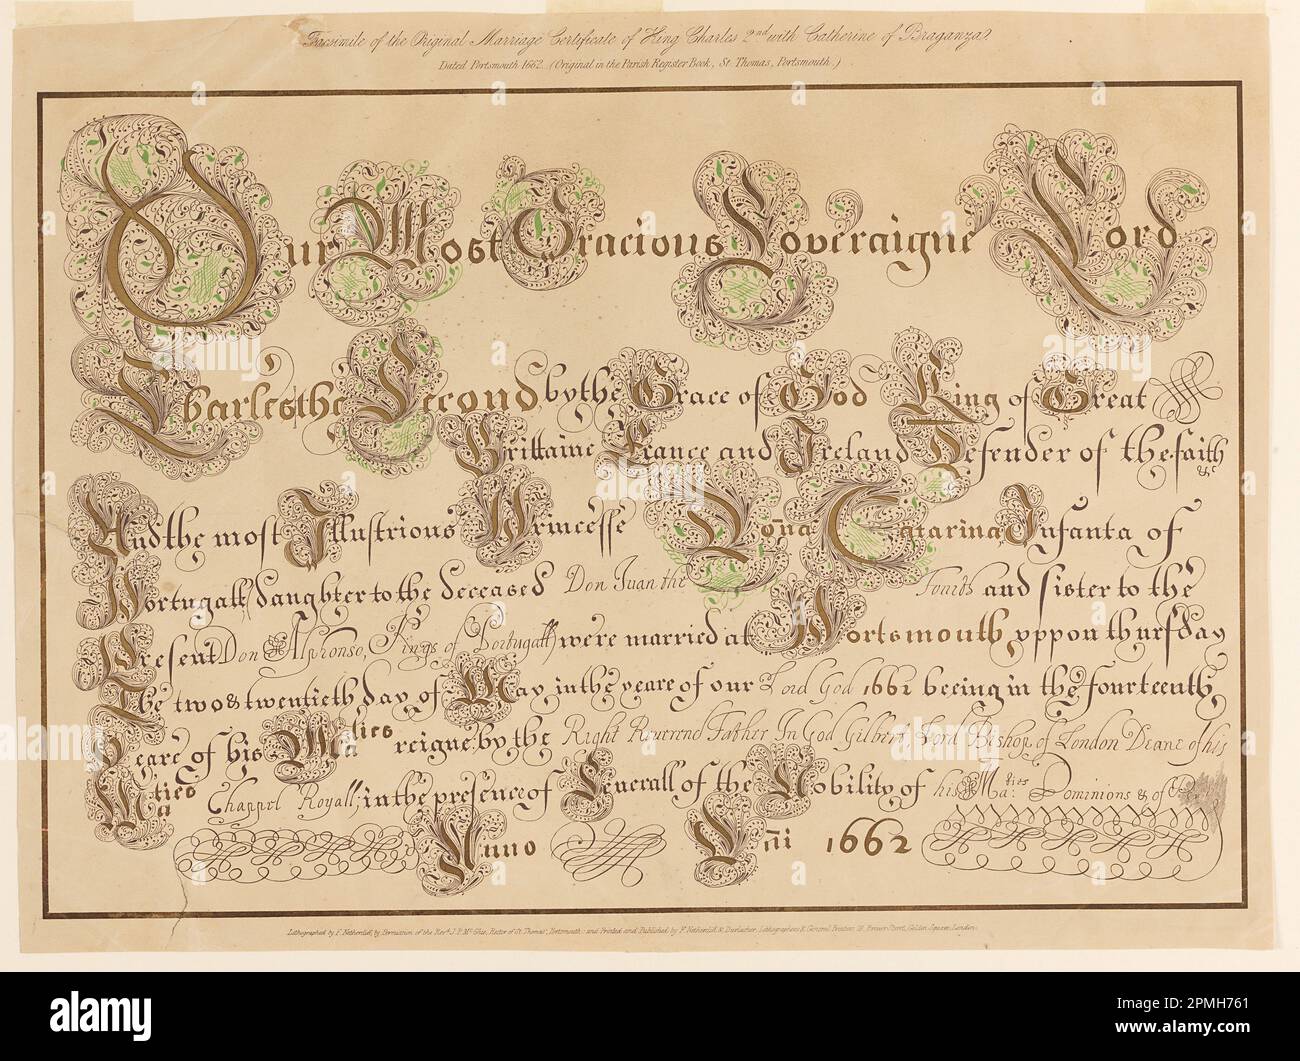 Facsimile of the Original Marriage Certificate of King Charles 2nd with Catherine of Braganza
Dated Portsmouth 1662. (Original in the Parish Register Book, St Thomas, Portsmouth.)
Our Most Gracious Soveraigne Lord
Charles the Second by the Grace of God King of Great
Brittaine France and Ireland Defender of the faith &c
And the most Illustrious Princesse Dona Catarina Infanta of
Portugall daughter to the deceased Don Juan the and sister to the
Present Don Alphonso, Kings of Portugall were married at Portsmouth uppon thursday
The two & twentieth day of May in the yeare of our Lord God 1662 beeing in the fourteenth
yeare of his Maties reigne; by the Right Reverend Father In God Gilbert Lord Bishop of London Deane of his
Maties Chappel Royall; in the presence of Severall of the Nobility of his Maties Dominions & of
Anno Dni 1662
Lithographed by F. Netherclift, by Permission of the Revd J. P. McGhie, Rector of St Thomas', Portsmouth: and Printed and Published by F. Netherclift & Durlacher, Lithographers & General Printers, 18, Brewer Street, Golden Square, London.
alamy
Image ID: 2PMH761
www.alamy.com